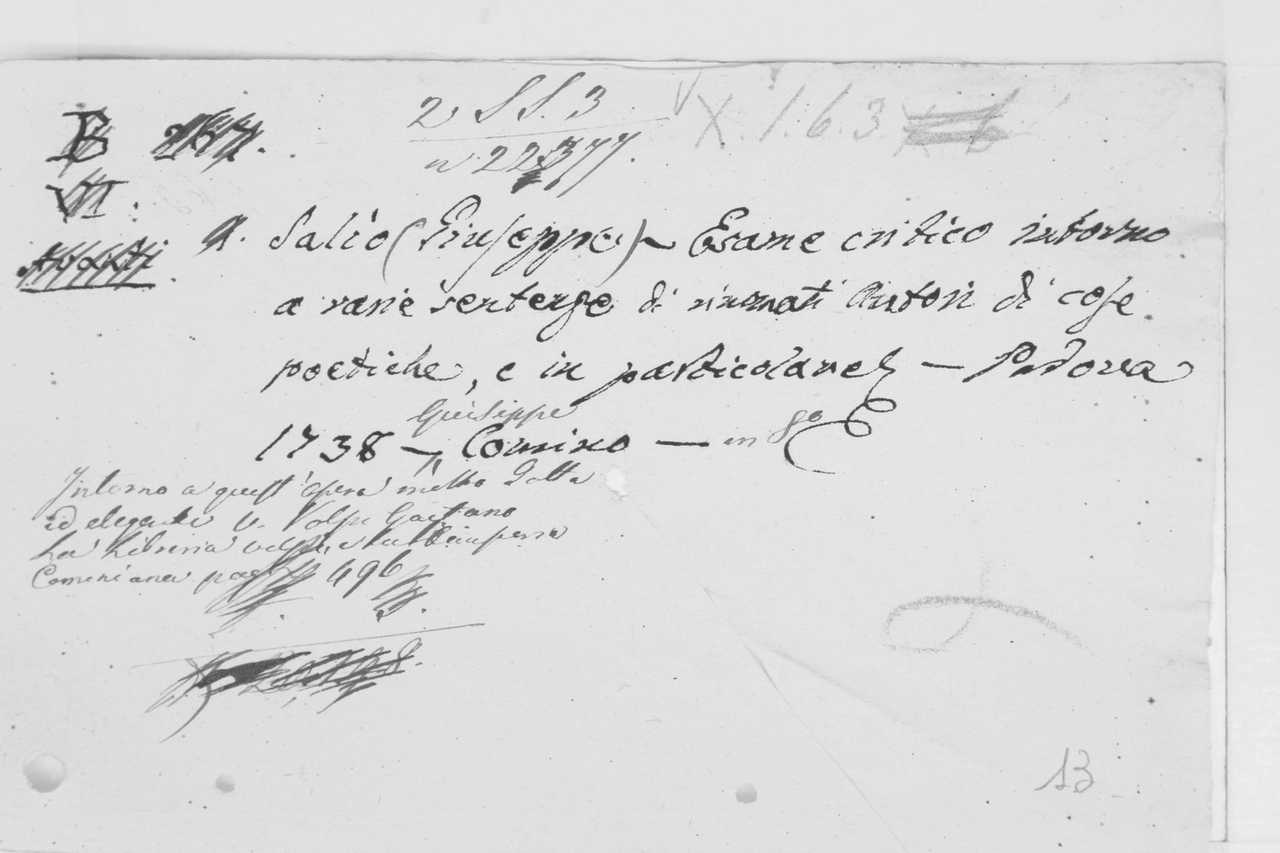 2 SS. 3
X. 1. 6. 3
n 22377.
B
VI.
a. Salio (Giuseppe) - Esame critico intorno
a varie sentenze di rinomati Autori di cose
poetiche, e in particolare — Padova
Giuseppe
1738 - Comino — in 8o
Intorno a quest'opera molto dotta
ed elegante v. Volpi Gaetano
La Libreria Volpi, e la Stamperia
Cominiana pag 496
13